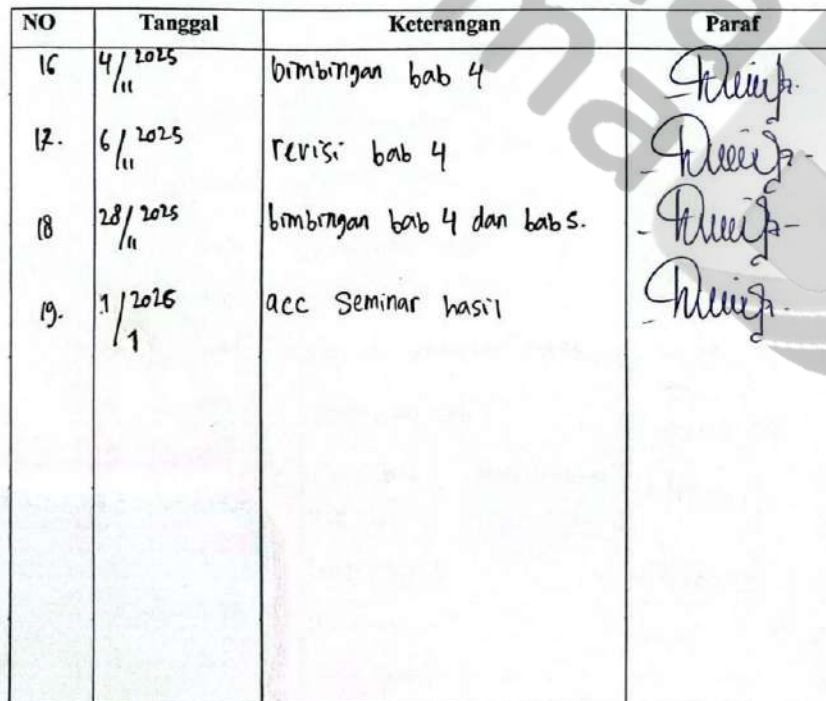 NO Tanggal Keterangan Paraf
16 4/11 2025 bimbingan bab 4
17. 6/11 2025 revisi bab 4
18 28/11 2025 bimbingan bab 4 dan bab 5.
19. 1/1 2026 acc Seminar hasil